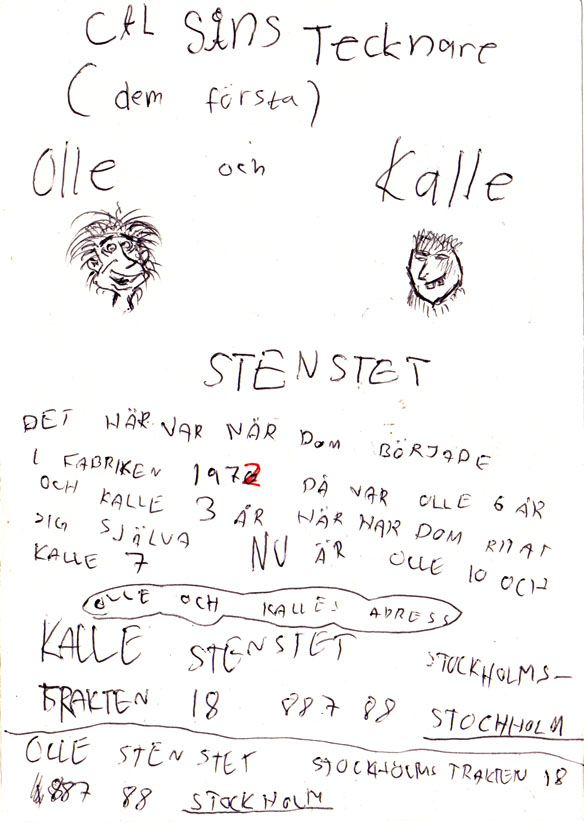 CAL SÅNS Tecknare
(dem första)
Olle och Kalle
STENSTET
DET HÄR VAR NÄR DOM BÖRJADE
I FABRIKEN 1972 DÅ VAR OLLE 6 ÅR
OCH KALLE 3 ÅR HÄR HAR DOM RITAT
SIG SJÄLVA NU ÄR OLLE 10 OCH
KALLE 7
OLLE OCH KALLES ADRESS
KALLE STENSTET STOCKHOLMS-
TRAKTEN 18 887 88 STOCHHOLM
OLLE STENSTET STOCKHOLMS TRAKTEN 18
887 88 STOCKHOLM